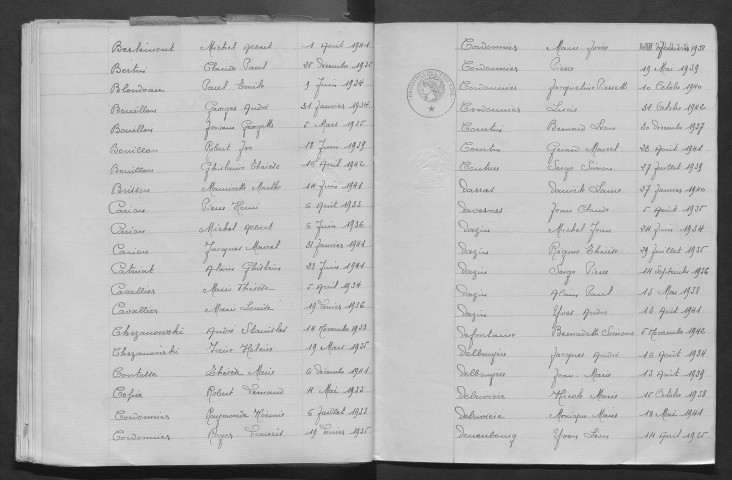 Berlaimont Michel Ernest 1 Août 1941
Bertin Claude Paul 25 décembre 1935
Blondeau Paul Emile 9 Juin 1934
Bouillon Georges André 31 Janvier 1934
Bouillon Georgette 5 Mars 1935
Bouillon Robert 18 Juin 1939
Bouillon Ghislaine Thérèse 10 Avril 1942
Brisson Marthe 14 Juin 1948
Carion Pierre Henri 6 Août 1933
Carion Michel Albert 6 Juin 1936
Carion Jacques Marcel 31 Janvier 1941
Alain Ghislain 22 Juin 1941
Cavallier Marie Thérèse 5 Avril 1934
Cavallier Marie Louise 19 Février 1936
Chrzanowski André Stanislas 14 Novembre 1933
Chrzanowski Hélène 19 Mars 1935
Contesse Thérèse Marie 6 décembre 1941
Copin Robert Fernand 4 Mai 1933
Cordonnier Raymonde 6 Juillet 1933
Cordonnier Roger François 19 Février 1935
Cordonnier Marie 1938
Cordonnier Pierre 19 Mai 1939
Cordonnier Jacqueline Pierrette 10 Octobre 1940
Cordonnier Lucie 31 Octobre 1942
Courtin Bernard Léon 30 décembre 1937
Courtin Gérard Marcel 28 Août 1941
Serge Simon 27 Juillet 1939
Darras 27 Janvier 1940
Jean Claude 5 Août 1935
Dazin Michel Jean 24 Juin 1934
Dazin Régine Thérèse 29 Juillet 1935
Dazin Serge Pierre 14 Septembre 1936
Dazin Alain Paul 13 Mai 1938
Dazin Yves André 13 Août 1941
Defontaine Bernadette Simone 5 Novembre 1942
Delbruyère Jacques André 16 Août 1934
Delbruyère Jean Marie 13 Août 1939
Delavière Marie 15 Octobre 1938
Delavière Monique Marie 18 Mai 1941
Yvon Léon 14 Avril 1935